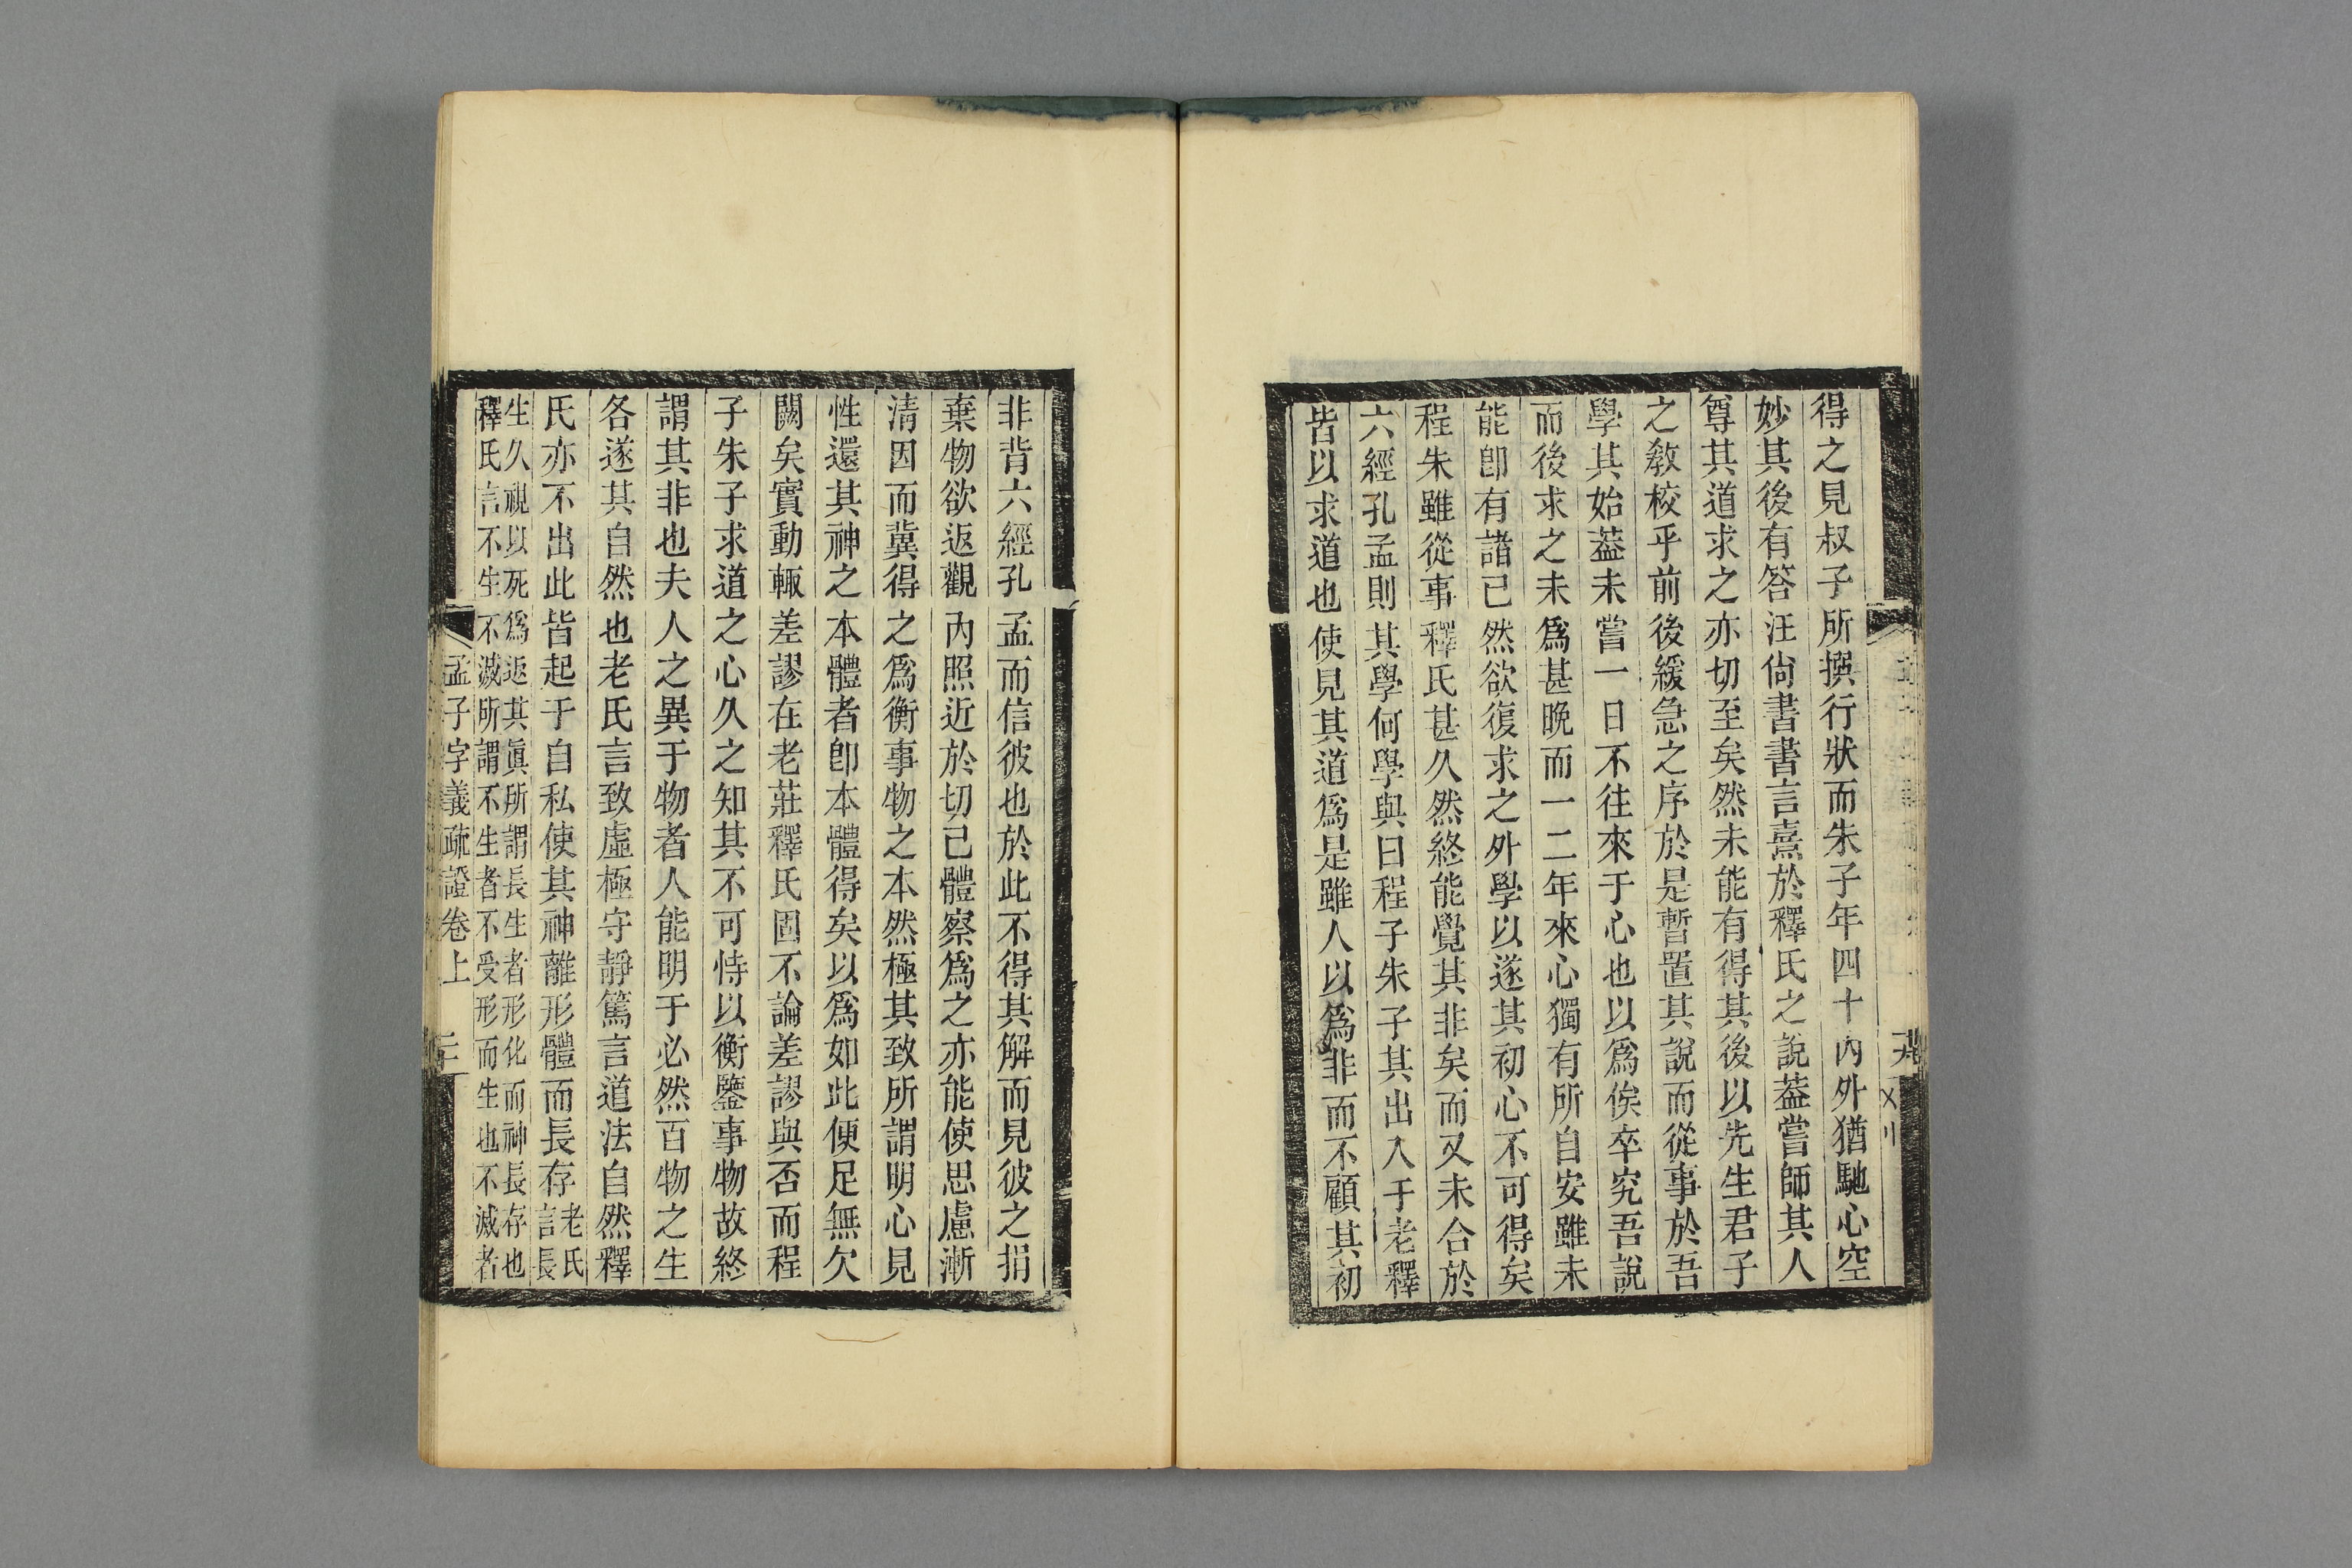 得之見叔子所撰行狀而朱子年四十內外猶馳心空
妙其後有答汪尙書書言熹於釋氏之說葢嘗師其人
尊其道求之亦切至矣然未能有得其後以先生君子
之敎校乎前後緩急之序於是暫置其說而從事於吾
學其始葢未嘗一日不往來于心也以爲俟卒究吾說
而後求之未爲甚晩而一二年來心獨有所自安雖未
能卽有諸己然欲復求之外學以遂其初心不可得矣
程朱雖從事釋氏甚久然終能覺其非矣而又未合於
六經孔孟則其學何學與曰程子朱子其出入于老釋
皆以求道也使見其道爲是雖人以爲非而不顧其初
非背六經孔孟而信彼也於此不得其解而見彼之捐
棄物欲返觀內照近於切己體察爲之亦能使思慮漸
清因而冀得之爲衡事物之本然極其致所謂明心見
性還其神之本體者卽本體得矣以爲如此便足無欠
闕矣實動輒差謬在老莊釋氏固不論差謬與否而程
子朱子求道之心久之知其不可恃以衡鑒事物故終
謂其非也夫人之異于物者人能明于必然百物之生
各遂其自然也老氏言致虛極守靜篤言道法自然釋
氏亦不出此皆起于自私使其神離形體而長存老氏言長
生久視以死爲返其眞所謂長生者形化而神長存也
釋氏言不生不滅所謂不生者不受形而生也不滅者
孟子字義疏證卷上